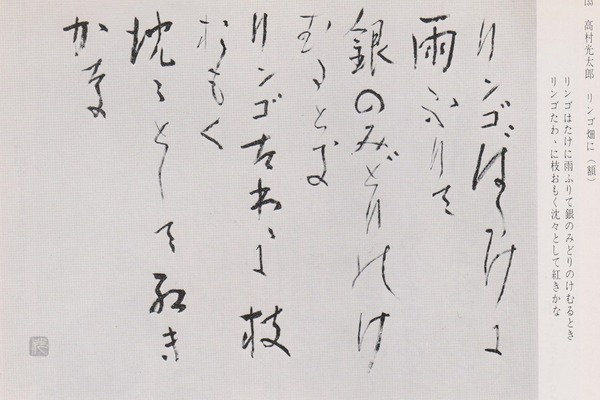 133 高村光太郎 リンゴ畑に（額）
リンゴはたけに雨ふりて銀のみどりのけむるとき
リンゴたわゝに枝おもく沈々として紅きかな
リンゴばたけに
雨ふりて
銀のみどりのけ
むるとき
リンゴたわゝに枝
おもく
沈々として紅き
かな